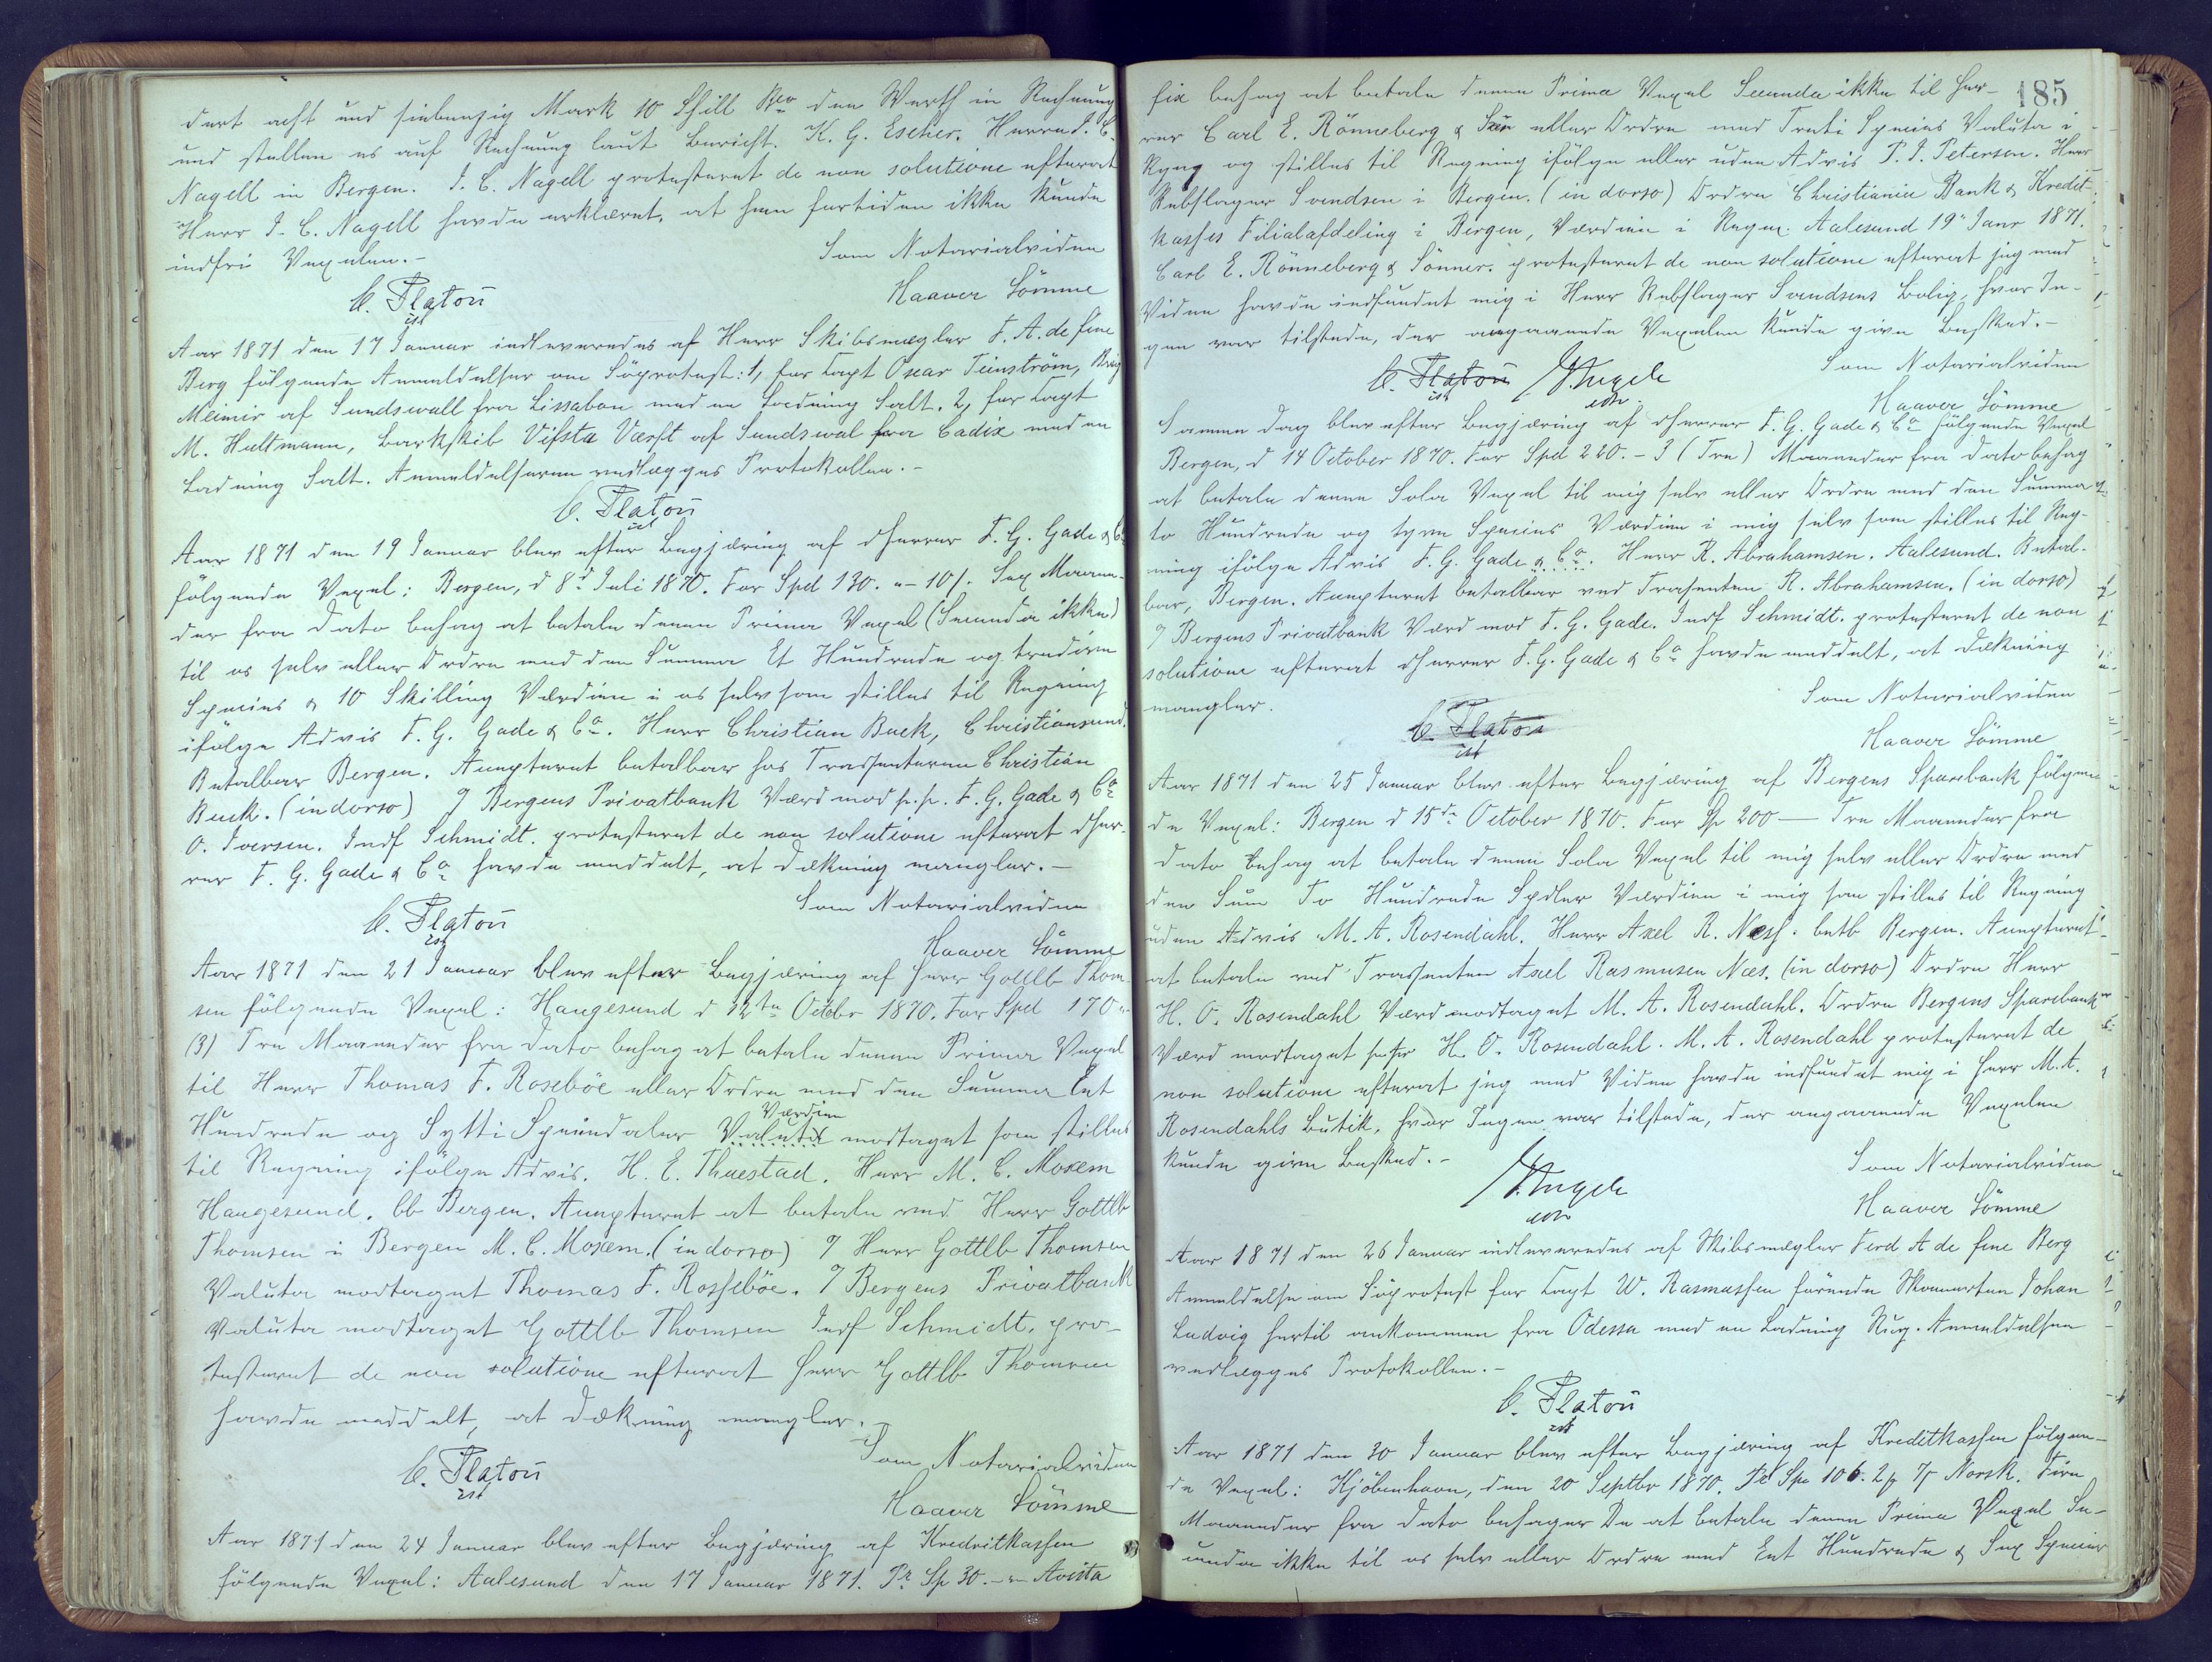 dert acht und siebenzig Mark 10 Shill Bco den Werth in Rechnung
und stellen es auf Rechnung laut Bericht. K. G. Escher. Herrn J. C.
Nagell in Bergen. J. C. Nagell protesteret de non solutione efterat
Herr J. C. Nagell havde erklæret, at han fortiden ikke kunde
indfri Vexelen.-
Som Notarialvidne
C. Platou
Haaver Sömme
cst
Aar 1871 den 17 Januar indleveredes af Herr Skibsmægler F. A. de fine
Berg følgende Anmeldelser om Söprotest: 1, for Capt Oscar Teinström, Brig
Meimir af Sundswall fra Lissabon med en Ladning Salt. 2, for Capt
M. Hultmann, Barkskib Vifsta Værft af Sundswal fra Cadix med en
Ladning Salt. Anmeldelserne vedlægges Protokollen.-
C. Platou
cst
Aar 1871 den 19 Januar blev efter Begjæring af dHerrer F. G. Gade & Co
følgende Vexel: Bergen, d 8d Juli 1870. For Spd 130. "- 10/. Sex Maane-
der fra Dato behag at betale denne Prima Vexel (Secunda ikke)
til os selv eller Ordre med den Summa Et Hundrede og tredive
Species & 10 Skilling Værdien i os selv som stilles til Regning
ifølge Advis F. G. Gade & Co. Herr Christian Buck, Christianssund.
Betalbar Bergen. Accepteret betalbar hos Trassenterne Christian
Buck. (in dorso) ? Bergens Privatbank Værd mod p. p. F. G. Gade & Co
O. Iversen. Indf Schmidt. protesteret de non solutione efterat dHer-
rer F. G. Gade & Co havde meddelt, at Dækning mangler.-
Som Notarialvidne
C. Platou
cst
Haaver Sömme
Aar 1871 den 21 Januar blev efter Begjæring af Herr Gottlb Thom-
sen følgende Vexel: Haugesund d 12te Octobr 1870. For Spd 170 "
(3) Tre Maaneder fra Dato behag at betale denne Prima Vexel
til Herr Thomas F. Rosebøe eller Ordre med den Summa Eet
Værdien
Hundrede og Sytti Speciedaler Valuta modtaget som stilles
til Regning ifølge Advis. H. E. Thuestad. Herr M. C. Moxem
Haugesund. bb Bergen. Accepteret at betale ved Herr Gottlb
Thomsen i Bergen M. C. Moxem. (in dorso) ? Herr Gottlb Thomsen
Valuta modtaget Thomas F. Rossebøe. ? Bergens Privatbank
Valuta modtaget Gottlb Thomsen Indf Schmidt. pro-
testeret de non solutione efterat Herr Gottlb Thomsen
havde meddelt, at Dækning mangler.-
Som Notarialvidne
C. Platou
cst
Haaver Sömme
Aar 1871 den 24 Januar blev efter Begjæring af Kreditkassen
følgende Vexel: Aalesund den 17 Januar 1871. Pr Sp 30.-"- Avista
185
fix behag at betale denne Prima Vexel Secunda ikke til Her-
rer Carl E. Rönneberg & Søn eller Ordre med Treti Species Valuta i
Regng og stilles til Regning ifølge eller uden Advis P. J. Petersen. Herr
Rebslager Svendsen i Bergen. (in dorso) Ordre Christiania Bank & Kredit-
kasses Filialafdeling i Bergen, Værdien i Regng. Aalesund 19" Janr 1871.
Carl E. Rönneberg & Sönner. protesteret de non solutione efterat jeg med
Vidne havde indfundet mig i Herr Rebslager Svendsens Bolig, hvor In-
gen var tilstede, der angaaende Vexelen kunde give Besked.-
Som Notarialvidne
C. Platou
cst
Haaver Sömme
Samme Dag blev efter Begjæring af dHerrer F. G. Gade & Co følgende Vexel
Bergen, d 14 October 1870. For Spd 220.- 3 (Tre) Maaneder fra Dato behag
at betale denne Sola Vexel til mig selv eller Ordre med den Summa
to Hundrede og tyve Species Værdien i mig selv som stilles til Reg-
ning ifølge Advis F. G. Gade & Co. Herr R. Abrahamsen. Aalesund. Betal-
bar, Bergen. Accepteret betalbar ved Trassenten R. Abrahamsen. (in dorso)
? Bergens Privatbank Værd mod F. G. Gade. Indf Schmidt. protesteret de non
solutione efterat dHerrer F. G. Gade & Co havde meddelt, at Dækning
mangler.
Som Notarialvidne
C. Platou
cst
Haaver Sömme
Aar 1871 den 25 Januar blev efter Begjæring af Bergens Sparebank følgen-
de Vexel: Bergen d 15de October 1870. For Sp 200 — Tre Maaneder fra
Dato behag at betale denne Sola Vexel til mig selv eller Ordre med
den Sum To Hundrede Spdler Værdien i mig som stilles til Regning
uden Advis M. A. Rosendahl. Herr Axel R. Næss. betb Bergen. Accepteret
at betale ved Trassenten Axel Rasmusen Næs. (in dorso) Ordre Herr
H. O. Rosendahl Værd modtaget M. A. Rosendahl. Ordre Bergens Sparebank
Værd modtaget H. O. Rosendahl. M. A. Rosendahl protesteret de
non solutione efterat jeg med Vidne havde indfundet mig i Herr M. A.
Rosendahls Butik, hvor Ingen var tilstede, der angaaende Vexelen
kunde give Besked.-
Som Notarialvidne
Haaver Sömme
Aar 1871 den 26 Januar indleveredes af Skibsmægler Ferd A de fine Berg
Anmeldelse om Söprotest for Capt W. Rasmussen førende Skonnerten Johan
Ludvig hertil ankommen fra Odessa med en Ladning Rug. Anmeldelsen
vedlægges Protokollen.-
C. Platou
cst
Aar 1871 den 30 Januar blev efter Begjæring af Kreditkassen følgen-
de Vexel: Kjöbenhavn, den 20 Septbr 1870. Sp 106. 2 7 Norsk. Fire
Maaneder fra Dato behager De at betale denne Prima Vexel Se-
cunda ikke til os selv eller Ordre med Eet Hundrede & Sex Species